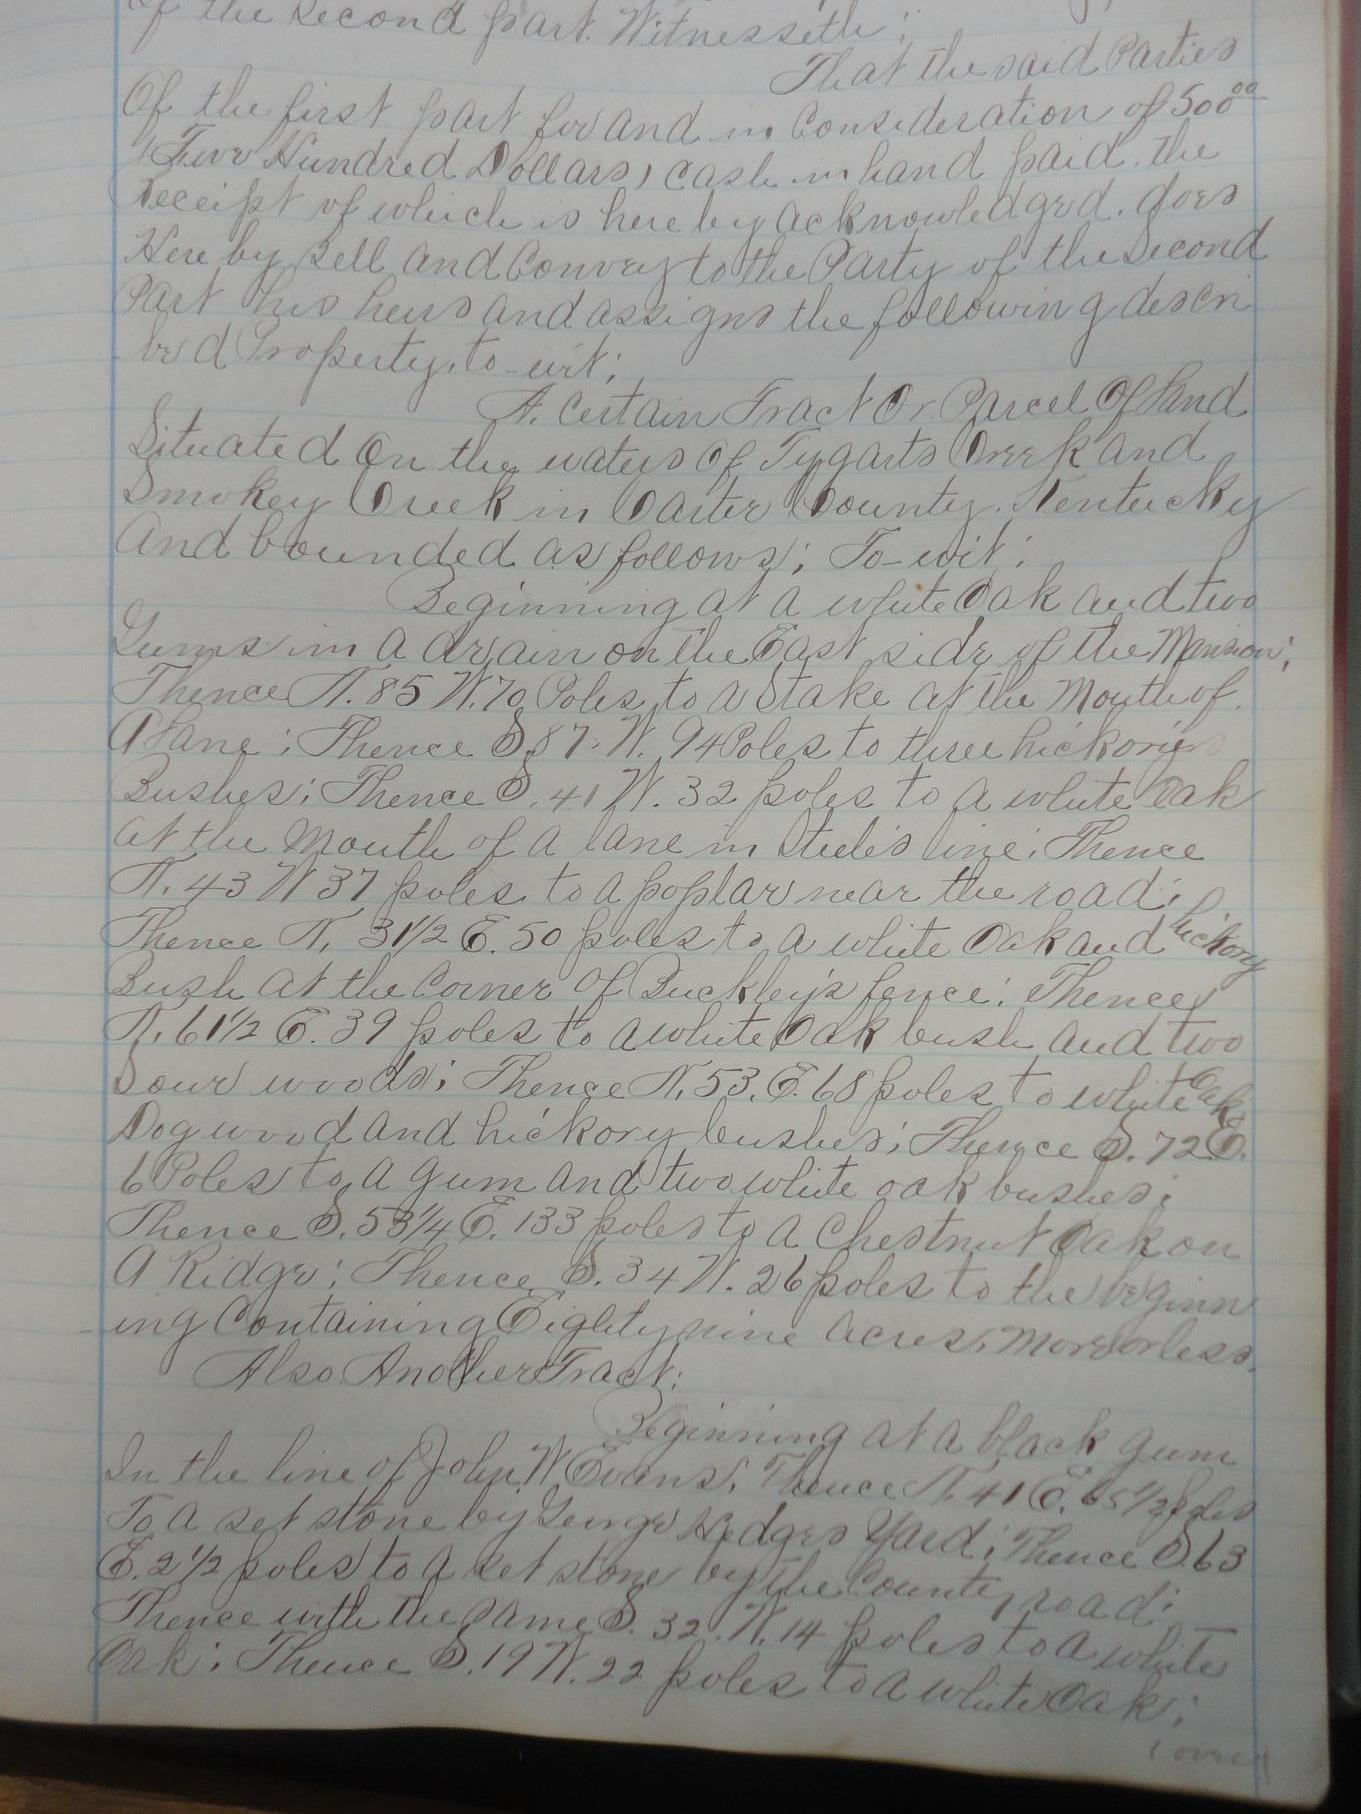 of the Second part. Witnesseth;
That the said Parties
Of the first part for and in Consideration of 500⁰⁰
(Five Hundred Dollars) Cash in hand paid. the
receipt of which is here by acknowledged. does
Here by Sell and Convey to the Party of the Second
Part his heirs and assigns the following descri
bed Property, to-wit;
A. Certain Tract Or Parcel Of Land
Situated On the waters Of Tygarts Creek and
Smokey Creek in Carter County. Kentucky
And bounded as follows; To-wit;
Beginning at a white Oak and two
Gums in a drain on the East side of the Mansion;
Thence N. 85 W. 70 Poles to a Stake at the Mouth of
A Lane; Thence S 87. W. 94 Poles to three hickories
Bushes; Thence S. 41 W. 32 poles to a white Oak
at the Mouth of a lane in Steele's line; Thence
N. 43 W 37 poles to a poplar near the road;
Thence N. 31½ E. 50 poles to a white Oak and hickory
Bush at the Corner of Buckley's fence; Thence
N. 61½ E. 39 poles to a white Oak bush and two
Sour woods; Thence N. 53. E. 68 poles to white Oak
Dogwood and hickory bushes; Thence S. 72 E.
6 Poles to a gum and two white oak bushes;
Thence S. 53¼ E. 133 poles to a Chestnut Oak on
A Ridge; Thence S. 34 W. 26 poles to the beginn
ing Containing Eighty nine acres. More or less.
Also Another Tract;
Beginning at a black gum
In the line of John W. Evans; Thence N. 41 E. 65½ poles
To a set stone by George Hedges Yard; Thence S. 63
E. 2½ poles to a set stone by the County road;
Thence with the same S. 32. W. 14 poles to a white
Oak; Thence S. 19 W. 22 poles to a white Oak;
(over)